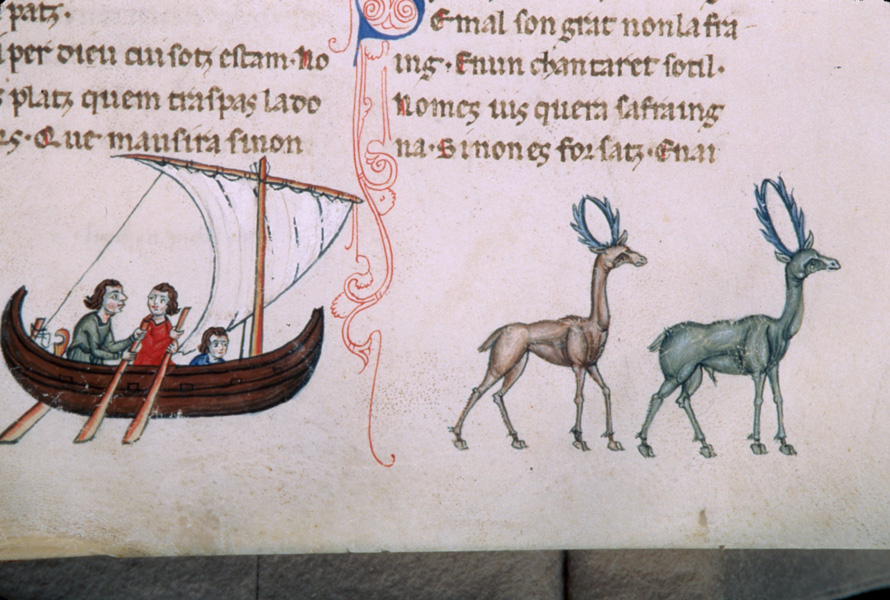 patz.
per dieu cui sotz estam. No
platz quem traspas lado
rs. Que mausira sinon
E mal son grat non la fra
ing. Enun chantaret sotil.
Nomes uis quera safraing
na. Si non es forsatz. Enai